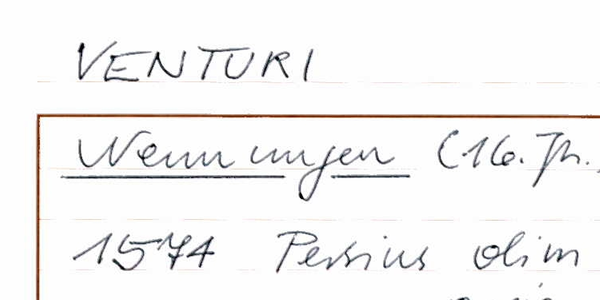 VENTURI
Nennungen (16. Jh.
1574 Persius olim